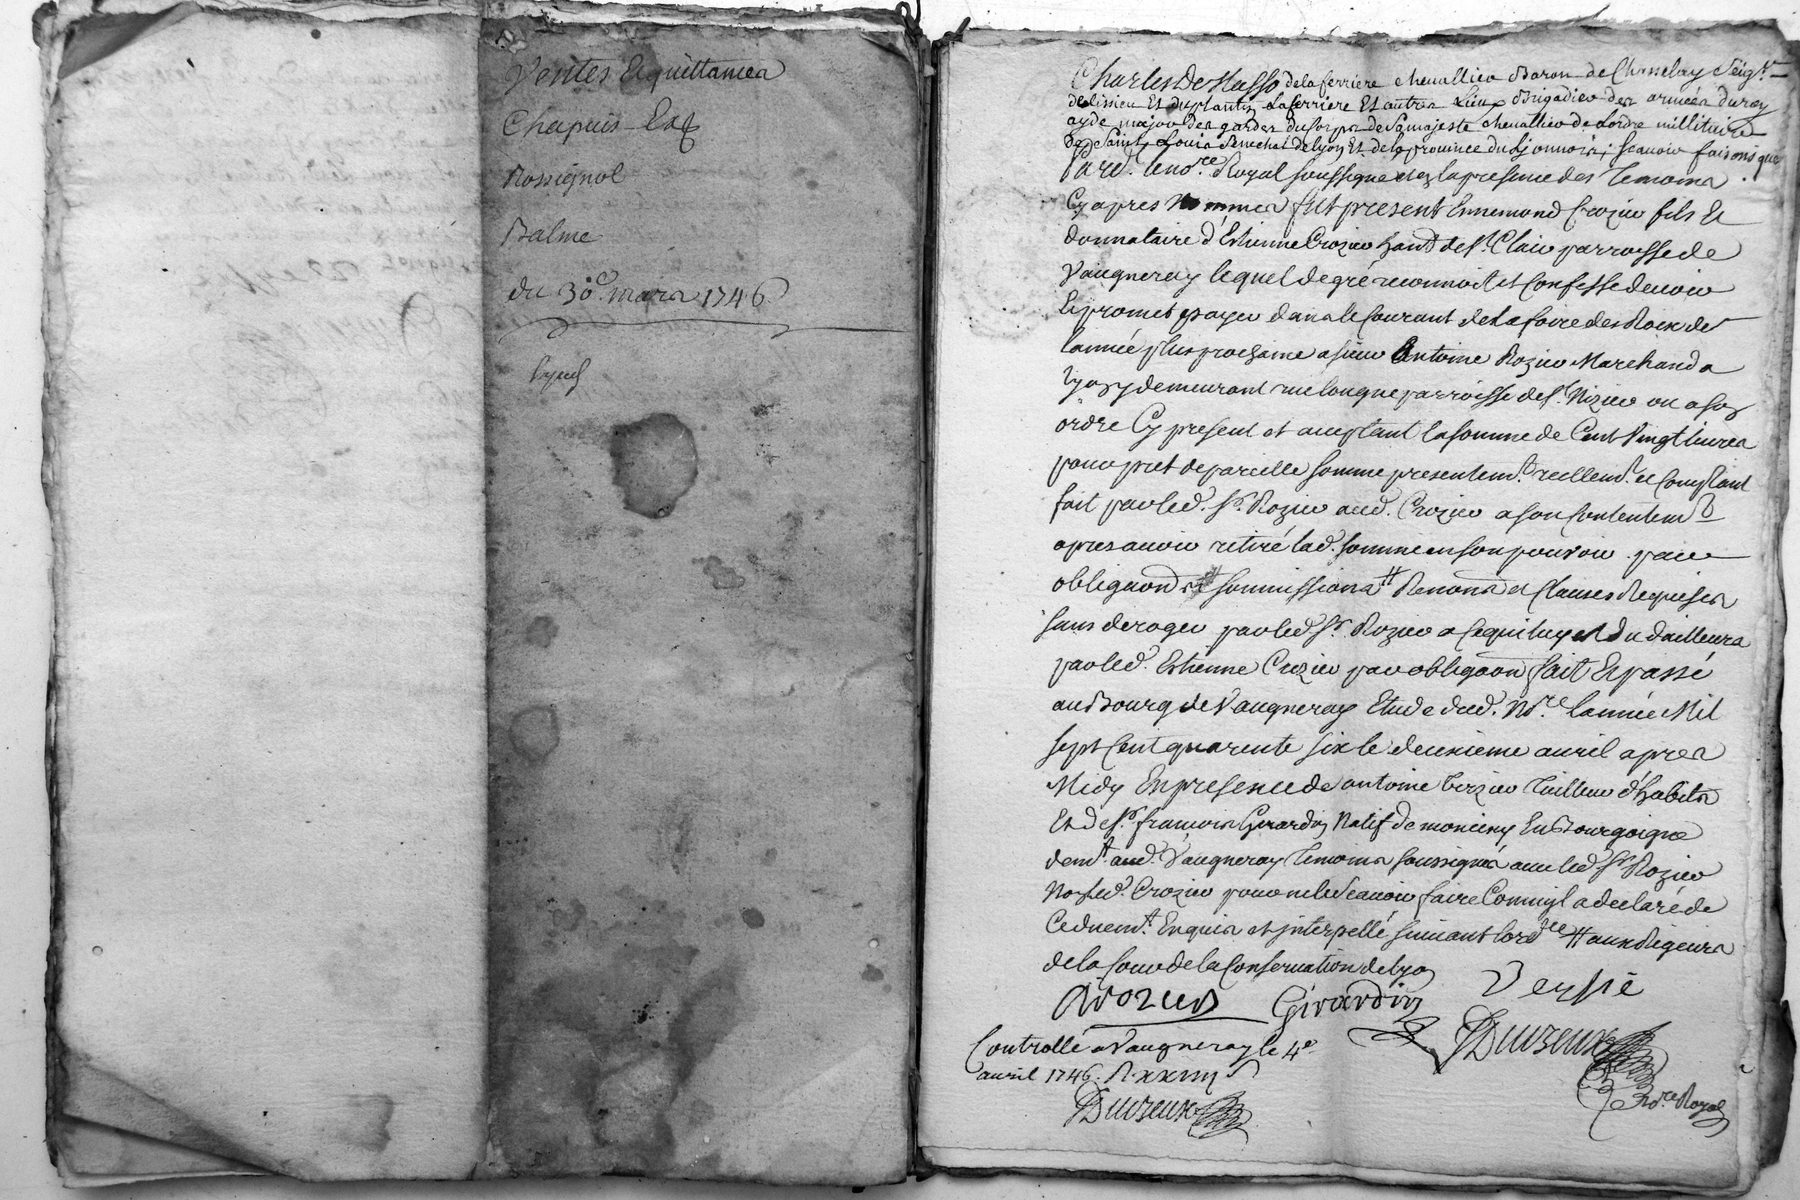 Ventes Et quittances
Chapuis
Rossignol
Balme
du 30e. mars 1746
Charles De Masso de la ferriere chevallier Baron de Chasselay Seigr.
de lissieu Et du plantin Laferriere Et autres Lieux Brigadier des armées du roy
ayde major des gardes du Corps de Sa majeste chevallier de Lordre millitaire
de Saint Louis Senechal de lyon Et de la province du Lyonnois; scavoir faisons que
Pard. le nore. Royal soussigne et en la presence des Temoins
Cy apres nommes fut present Ennemond Crozier fils Et
donnataire d'Estienne Crozier hant. de St. Clair parroisse de
Vaugneray lequel de gré reconnoit et Confesse devoir
Et promet payer dans le Courant de la foire des Rois de
lannée plus prochaine a sieur Antoine Rozier Marchand a
Lyon y demeurant rue longue parroisse de St. Nizier ou a son
ordre Cy present et acceptant la somme de Cent Vingt livres
pour pret de pareille somme presentemt. reellemt. et Comptant
fait par led. Sr. Rozier aud. Crozier a son Contentemt.
apres avoir retiré lad. somme en son pouvoir par
obligaon soumissions # Renons et Clauses Requises
sans deroger par led. Sr. Rozier a ce qui luy est du d'ailleurs
par led. Estienne Crozier par obligaon fait Et passé
au Bourg de Vaugneray Etude dud. Nore. lannée Mil
sept Cent quarente six le deuxieme avril apres
Midy En presence de antoine Verzier Tailleur d'habits
Et de Sr. françois Girardin Natif de En Bourgogne
demt. aud. Vaugneray Temoins soussignés avec led. Sr. Rozier
Non led. Crozier pour ne le Scavoir faire Comm'il a declaré de
Ce duemt. Enquis et interpellé suivant lordce # aux Rigeurs
de la Cour de la Conservation de lyon
Rozier Girardin Versie
Duvreux
nore. Royal
Controllé a Vaugneray le 4e.
avril 1746. R.
Duvreux